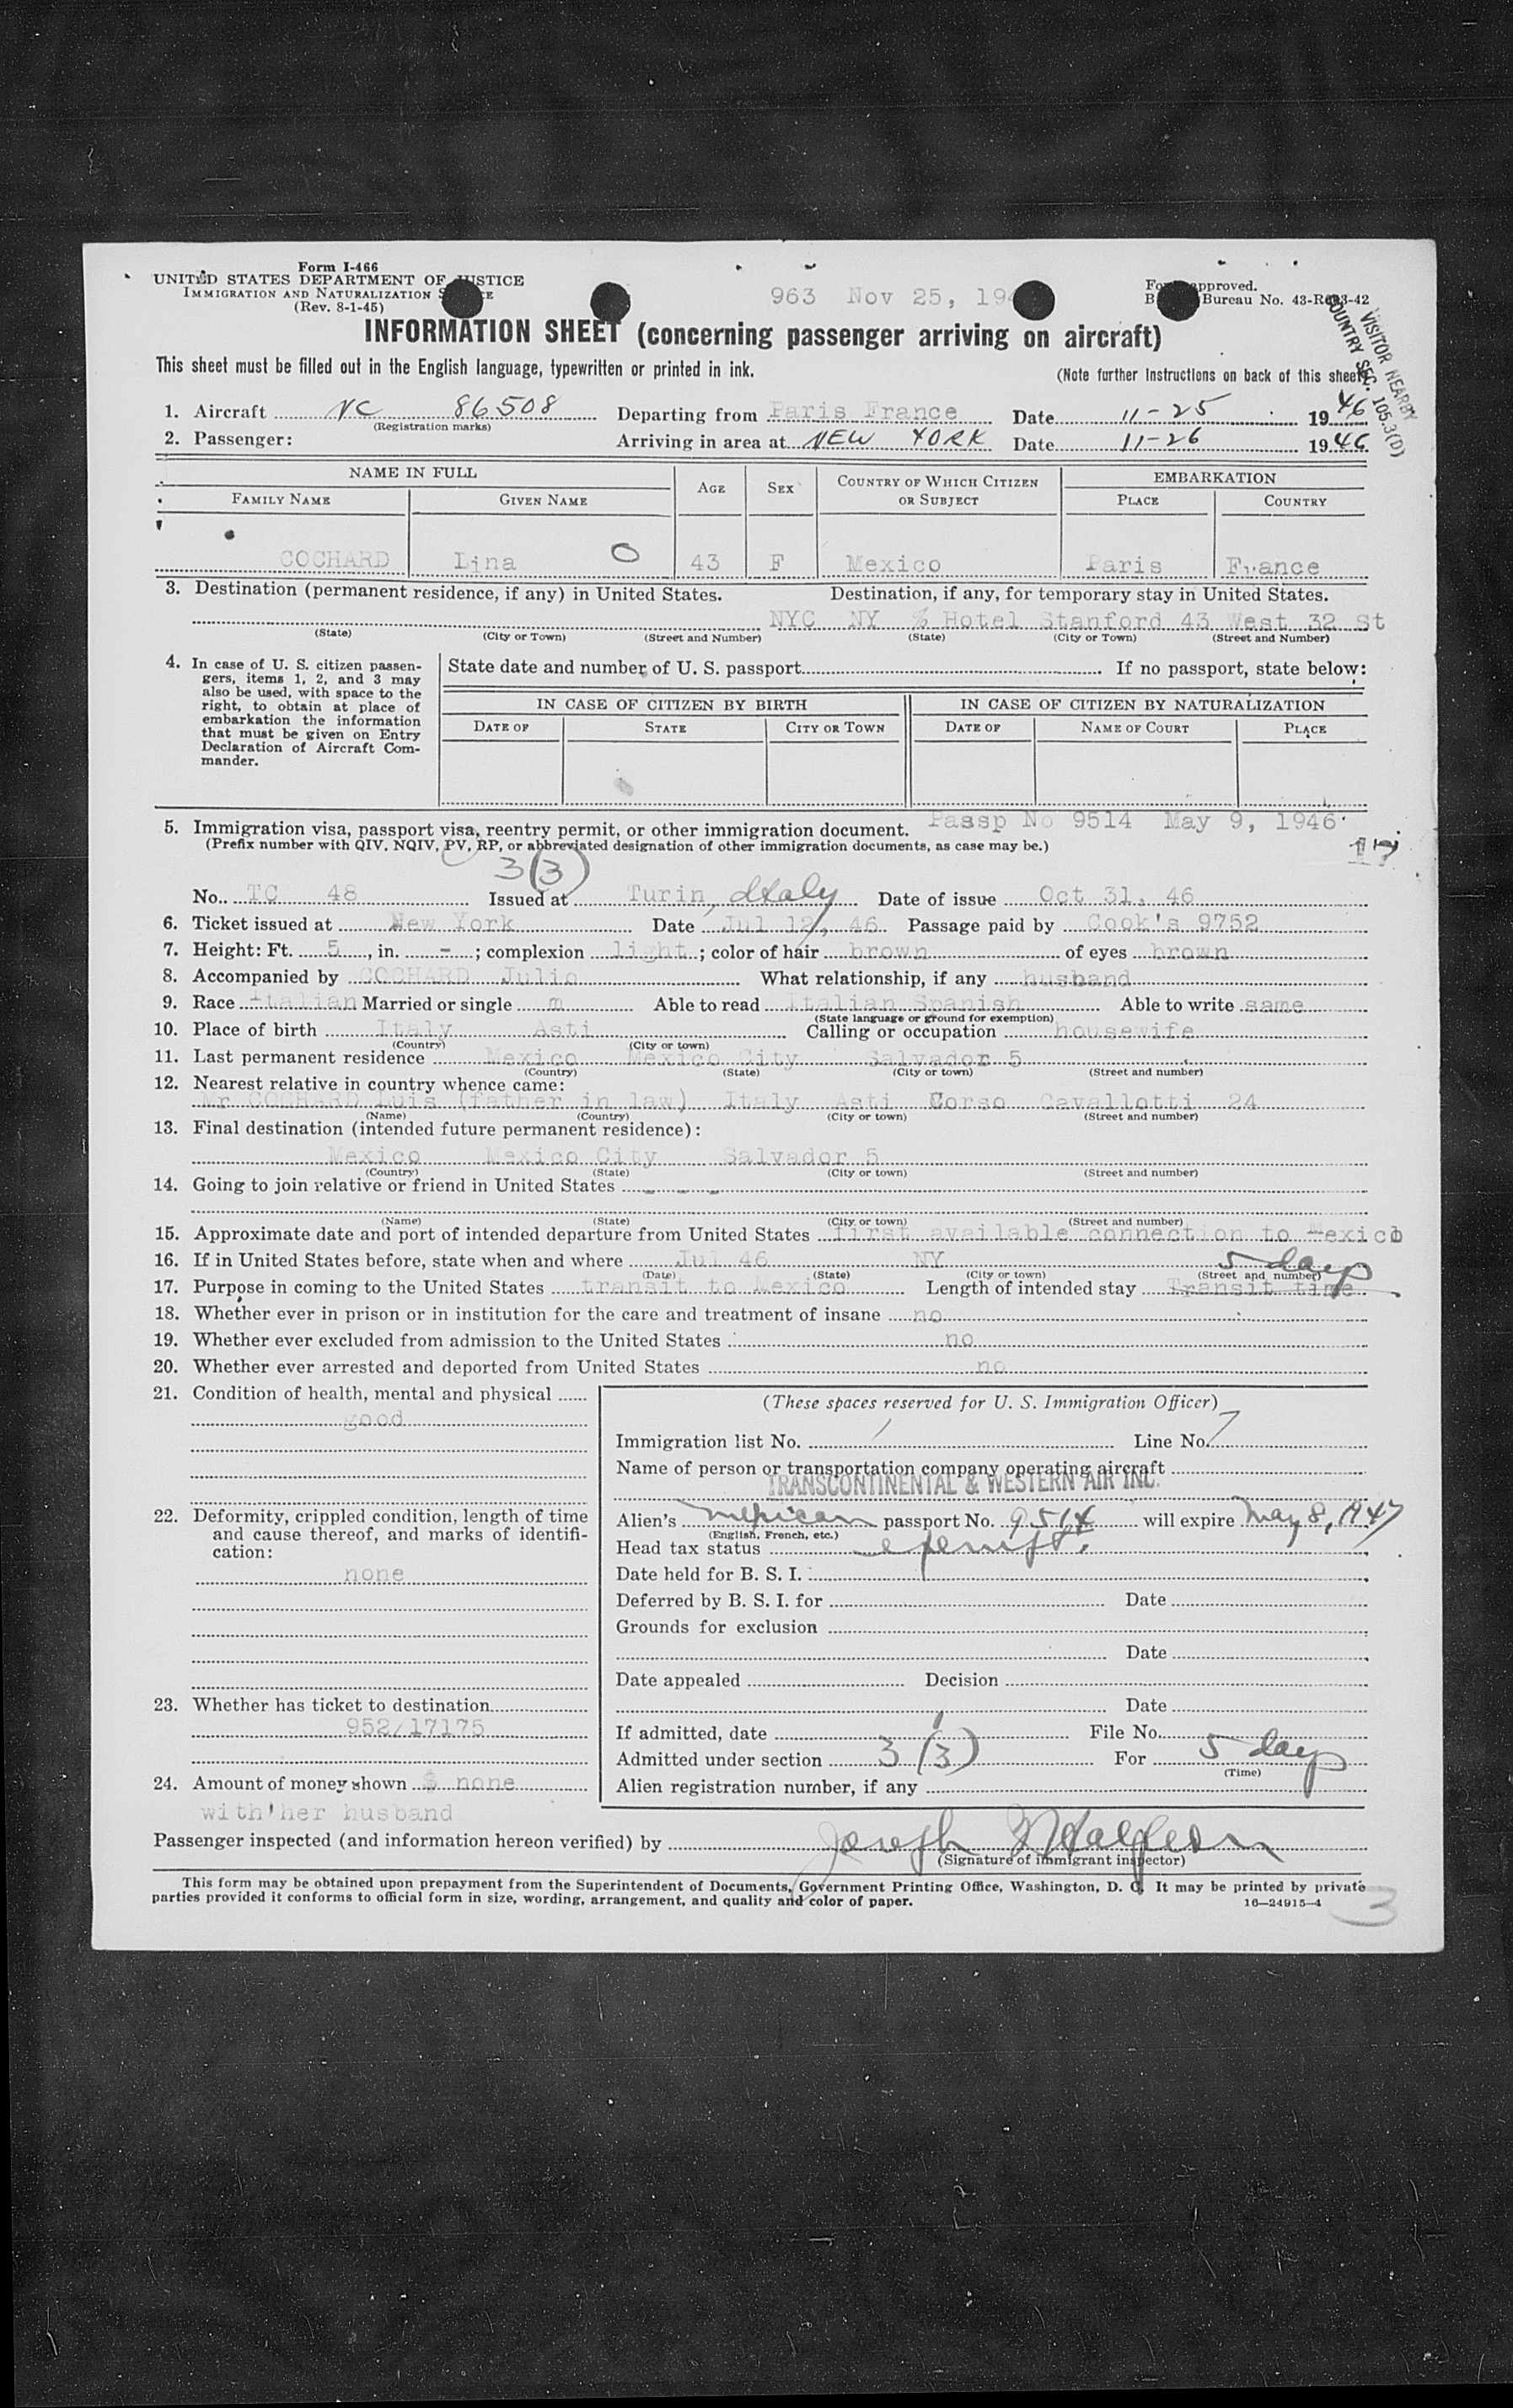 Form I-466
UNITED STATES DEPARTMENT OF JUSTICE
IMMIGRATION AND NATURALIZATION
(Rev. 8-1-45)
963 Nov 25, 19
approved.
Bureau No. 43-R083-42
VISITOR NEARBY
COUNTRY SEC. 105.3(D)
INFORMATION SHEET (concerning passenger arriving on aircraft)
This sheet must be filled out in the English language, typewritten or printed in ink.
(Note further instructions on back of this sheet)
1. Aircraft NC 86508 Departing from Paris France Date 11-25 1946
(Registration marks)
2. Passenger: Arriving in area at NEW YORK Date 11-26 1946
NAME IN FULL AGE SEX COUNTRY OF WHICH CITIZEN OR SUBJECT EMBARKATION
FAMILY NAME GIVEN NAME PLACE COUNTRY
COCHARD Lina O 43 F Mexico Paris France
3. Destination (permanent residence, if any) in United States. Destination, if any, for temporary stay in United States.
NYC NY % Hotel Stanford 43 West 32 St
(State) (City or Town) (Street and Number) (State) (City or Town) (Street and Number)
4. In case of U. S. citizen passengers, items 1, 2, and 3 may also be used, with space to the right, to obtain at place of embarkation the information that must be given on Entry Declaration of Aircraft Commander.
State date and number of U. S. passport If no passport, state below:
IN CASE OF CITIZEN BY BIRTH IN CASE OF CITIZEN BY NATURALIZATION
DATE OF STATE CITY OR TOWN DATE OF NAME OF COURT PLACE
5. Immigration visa, passport visa, reentry permit, or other immigration document. Passp No 9514 May 9, 1946
(Prefix number with QIV, NQIV, PV, RP, or abbreviated designation of other immigration documents, as case may be.)
17
3(3)
No. TC 48 Issued at Turin, Italy Date of issue Oct 31, 46
6. Ticket issued at New York Date Jul 12, 46 Passage paid by Cook's 9752
7. Height: Ft. 5, in. - ; complexion light; color of hair brown of eyes brown
8. Accompanied by COCHARD Julio What relationship, if any husband
9. Race Italian Married or single m Able to read Italian Spanish Able to write same
(State language or ground for exemption)
10. Place of birth Italy Asti Calling or occupation housewife
(Country) (City or town)
11. Last permanent residence Mexico Mexico City Salvador 5
(Country) (State) (City or town) (Street and number)
12. Nearest relative in country whence came:
Mr COCHARD Luis (father in law) Italy Asti Corso Cavallotti 24
(Name) (Country) (City or town) (Street and number)
13. Final destination (intended future permanent residence):
Mexico Mexico City Salvador 5
(Country) (State) (City or town) (Street and number)
14. Going to join relative or friend in United States - - -
(Name) (State) (City or town) (Street and number)
15. Approximate date and port of intended departure from United States first available connection to Mexico
16. If in United States before, state when and where Jul 46 NY
(Date) (State) (City or town) (Street and number)
5 days
17. Purpose in coming to the United States transit to Mexico Length of intended stay Transit time
18. Whether ever in prison or in institution for the care and treatment of insane no
19. Whether ever excluded from admission to the United States no
20. Whether ever arrested and deported from United States no
21. Condition of health, mental and physical
good
22. Deformity, crippled condition, length of time and cause thereof, and marks of identification:
none
23. Whether has ticket to destination
952/17175
24. Amount of money shown $ none
with her husband
(These spaces reserved for U. S. Immigration Officer)
Immigration list No. 1 Line No. 7
Name of person or transportation company operating aircraft
TRANSCONTINENTAL & WESTERN AIR INC.
Alien's Mexican passport No. 9514 will expire May 8, 1947
(English, French, etc.)
Head tax status exempt.
Date held for B. S. I.
Deferred by B. S. I. for Date
Grounds for exclusion
Date
Date appealed Decision
Date
If admitted, date File No.
Admitted under section 3(3) For 5 days
(Time)
Alien registration number, if any
Passenger inspected (and information hereon verified) by Joseph
(Signature of immigrant inspector)
This form may be obtained upon prepayment from the Superintendent of Documents, Government Printing Office, Washington, D. C. It may be printed by private
parties provided it conforms to official form in size, wording, arrangement, and quality and color of paper.
16—24915-4
3